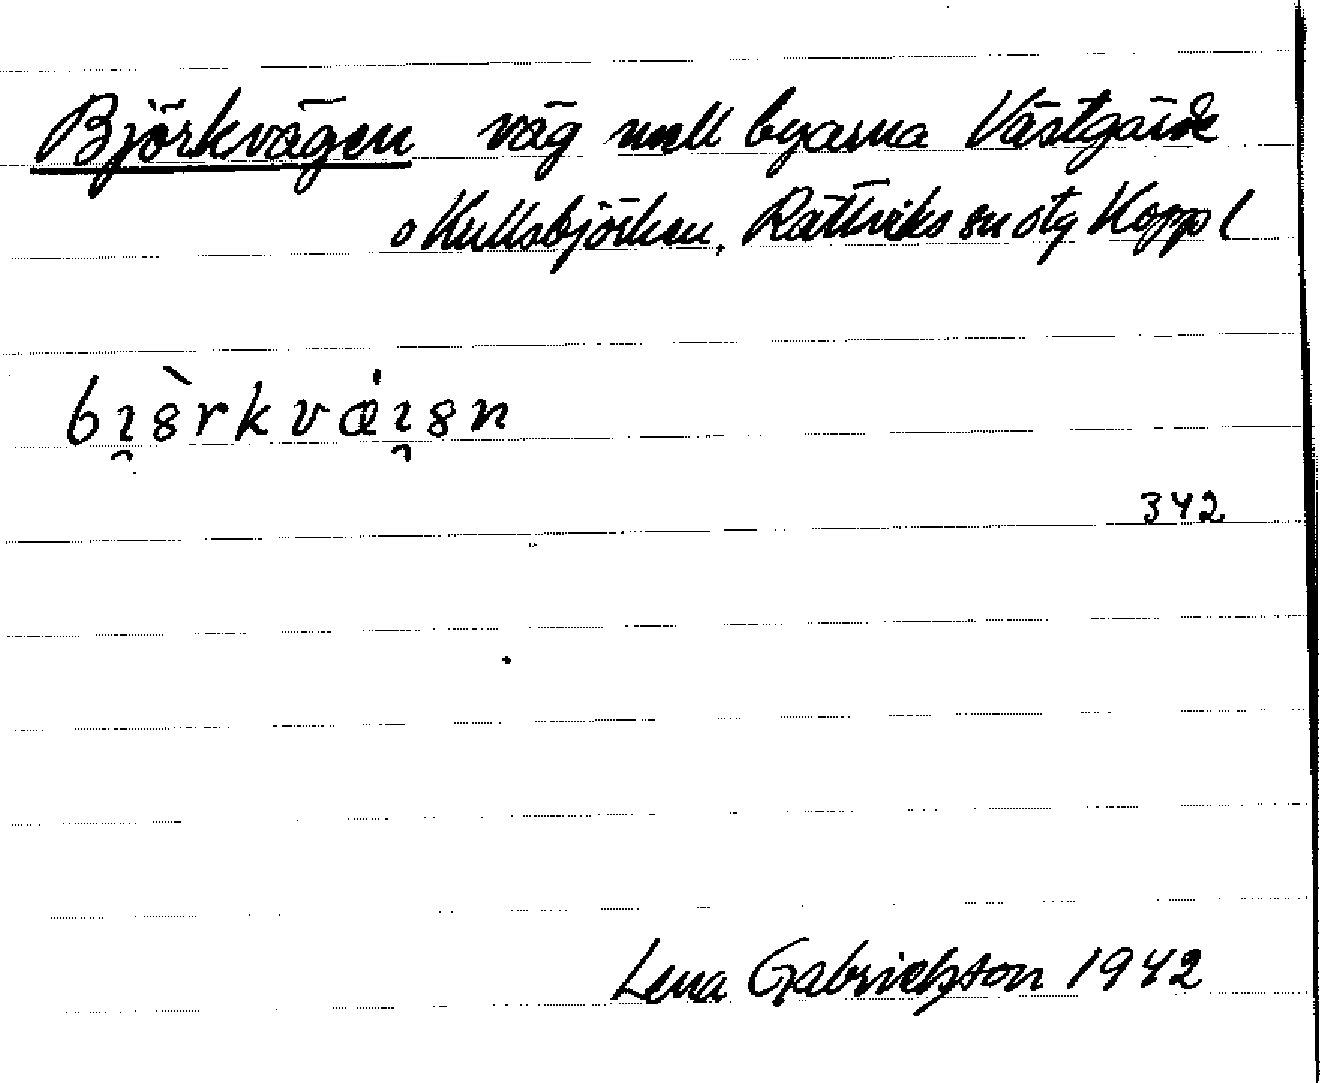 Björkvägen väg mell byarna Västgärde
o Kullsbjörken, Rättviks sn otg Kopp l
bı̯ȣ̀rkvǽı̯ȣn
342
Lena Gabrielsson 1942